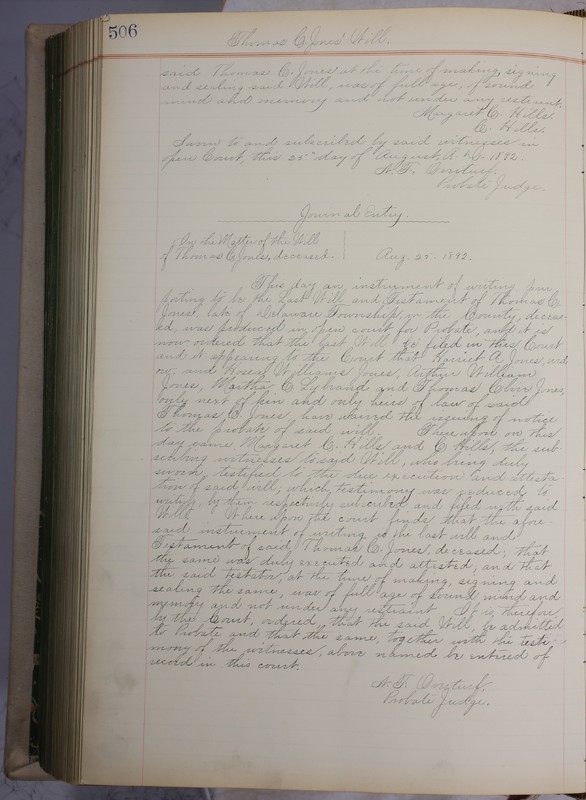 506
Thomas C. Jones' Will.
said Thomas C. Jones at the time of making, signing
and sealing said Will, was of full age, of sound
mind and memory and not under any restraint.
Margaret C. Hills.
C. Hills.
Sworn to and subscribed by said witnesses in
open Court, this 25" day of August A.D. 1892.
Probate Judge.
Journal Entry.
In the Matter of the Will
of Thomas C. Jones, deceased.
Aug. 25. 1892.
This day an instrument of writing pur-
porting to be the Last Will and Testament of Thomas C.
Jones, late of Delaware Township, in the County, deceas-
ed, was produced in open court for Probate, and it is
now ordered that the last Will be filed in this Court
and it appearing to the Court that Harriet A. Jones, wid-
ow, and Hosea Williams Jones, Arthur William
Jones, Martha C. Lybrand and Thomas Jones,
only next of kin and only heirs of law of said
Thomas C. Jones, have waived the issuing of notice
to the probate of said will. Thereupon on this
day came Margaret C. Hills and C. Hills, the sub-
scribing witnesses to said Will, who being duly
sworn, testified to the due execution and attesta-
tion of said will; which testimony was reduced to
writing, by them respectively subscribed and filed with said
Will. Whereupon the court finds that the afore-
said instrument of writing is the last will and
Testament of said Thomas C. Jones, deceased; that
the same was duly executed and attested, and that
the said testator, at the time of making, signing and
sealing the same, was of full age of sound mind and
memory and not under any restraint. It is therefore
by the Court, ordered, that the said Will, be admitted
to Probate and that the same, together with the testi-
mony of the witnesses, above named be entered of
record in this court.
Probate Judge.